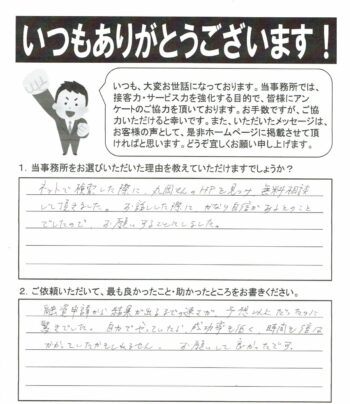 いつもありがとうございます！
いつも、大変お世話になっております。当事務所では、
接客力・サービス力を強化する目的で、皆様にアン
ケートのご協力を頂いております。お手数ですが、ご協
力いただけると幸いです。また、いただいたメッセージは、
お客様の声として、是非ホームページに掲載させて頂
ければと思います。どうぞ宜しくお願い申し上げます。
1. 当事務所をお選びいただいた理由を教えていただけますでしょうか？
ネットで検索した際に、丸岡さんのHPを見つけ 無料相談
して頂きました。お話しした際に、かなり自信があるとのこと
でしたので、お願いすることにしました。
2. ご依頼いただいて、最も良かったこと・助かったところをお書きください。
融資申請から結果が出るまでの速さが、予想以上だったのに
驚きでした。自力でやっていたら、成功率も低く、時間も倍は
かかっていたかもしれません。お願いして良かったです。